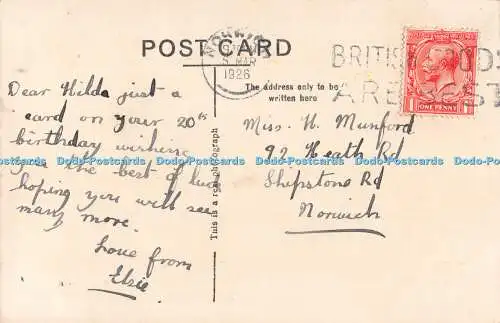 POST CARD
NORWICH
5 MAR
1926
BRITISH GOODS
ARE BEST
ONE PENNY
The address only to be
written here
Dear Hilda just a
card on your 20th
birthday wishing
you the best of luck
hoping you will see
many more.
Love from
Elsie
This is a real photograph
Miss H. Munford
92 Heath Rd
Shipstone Rd
Norwich
Dodo-Postcards Dodo-Postcards Dodo-Postcards Dodo-Postcards Dodo-Postcards